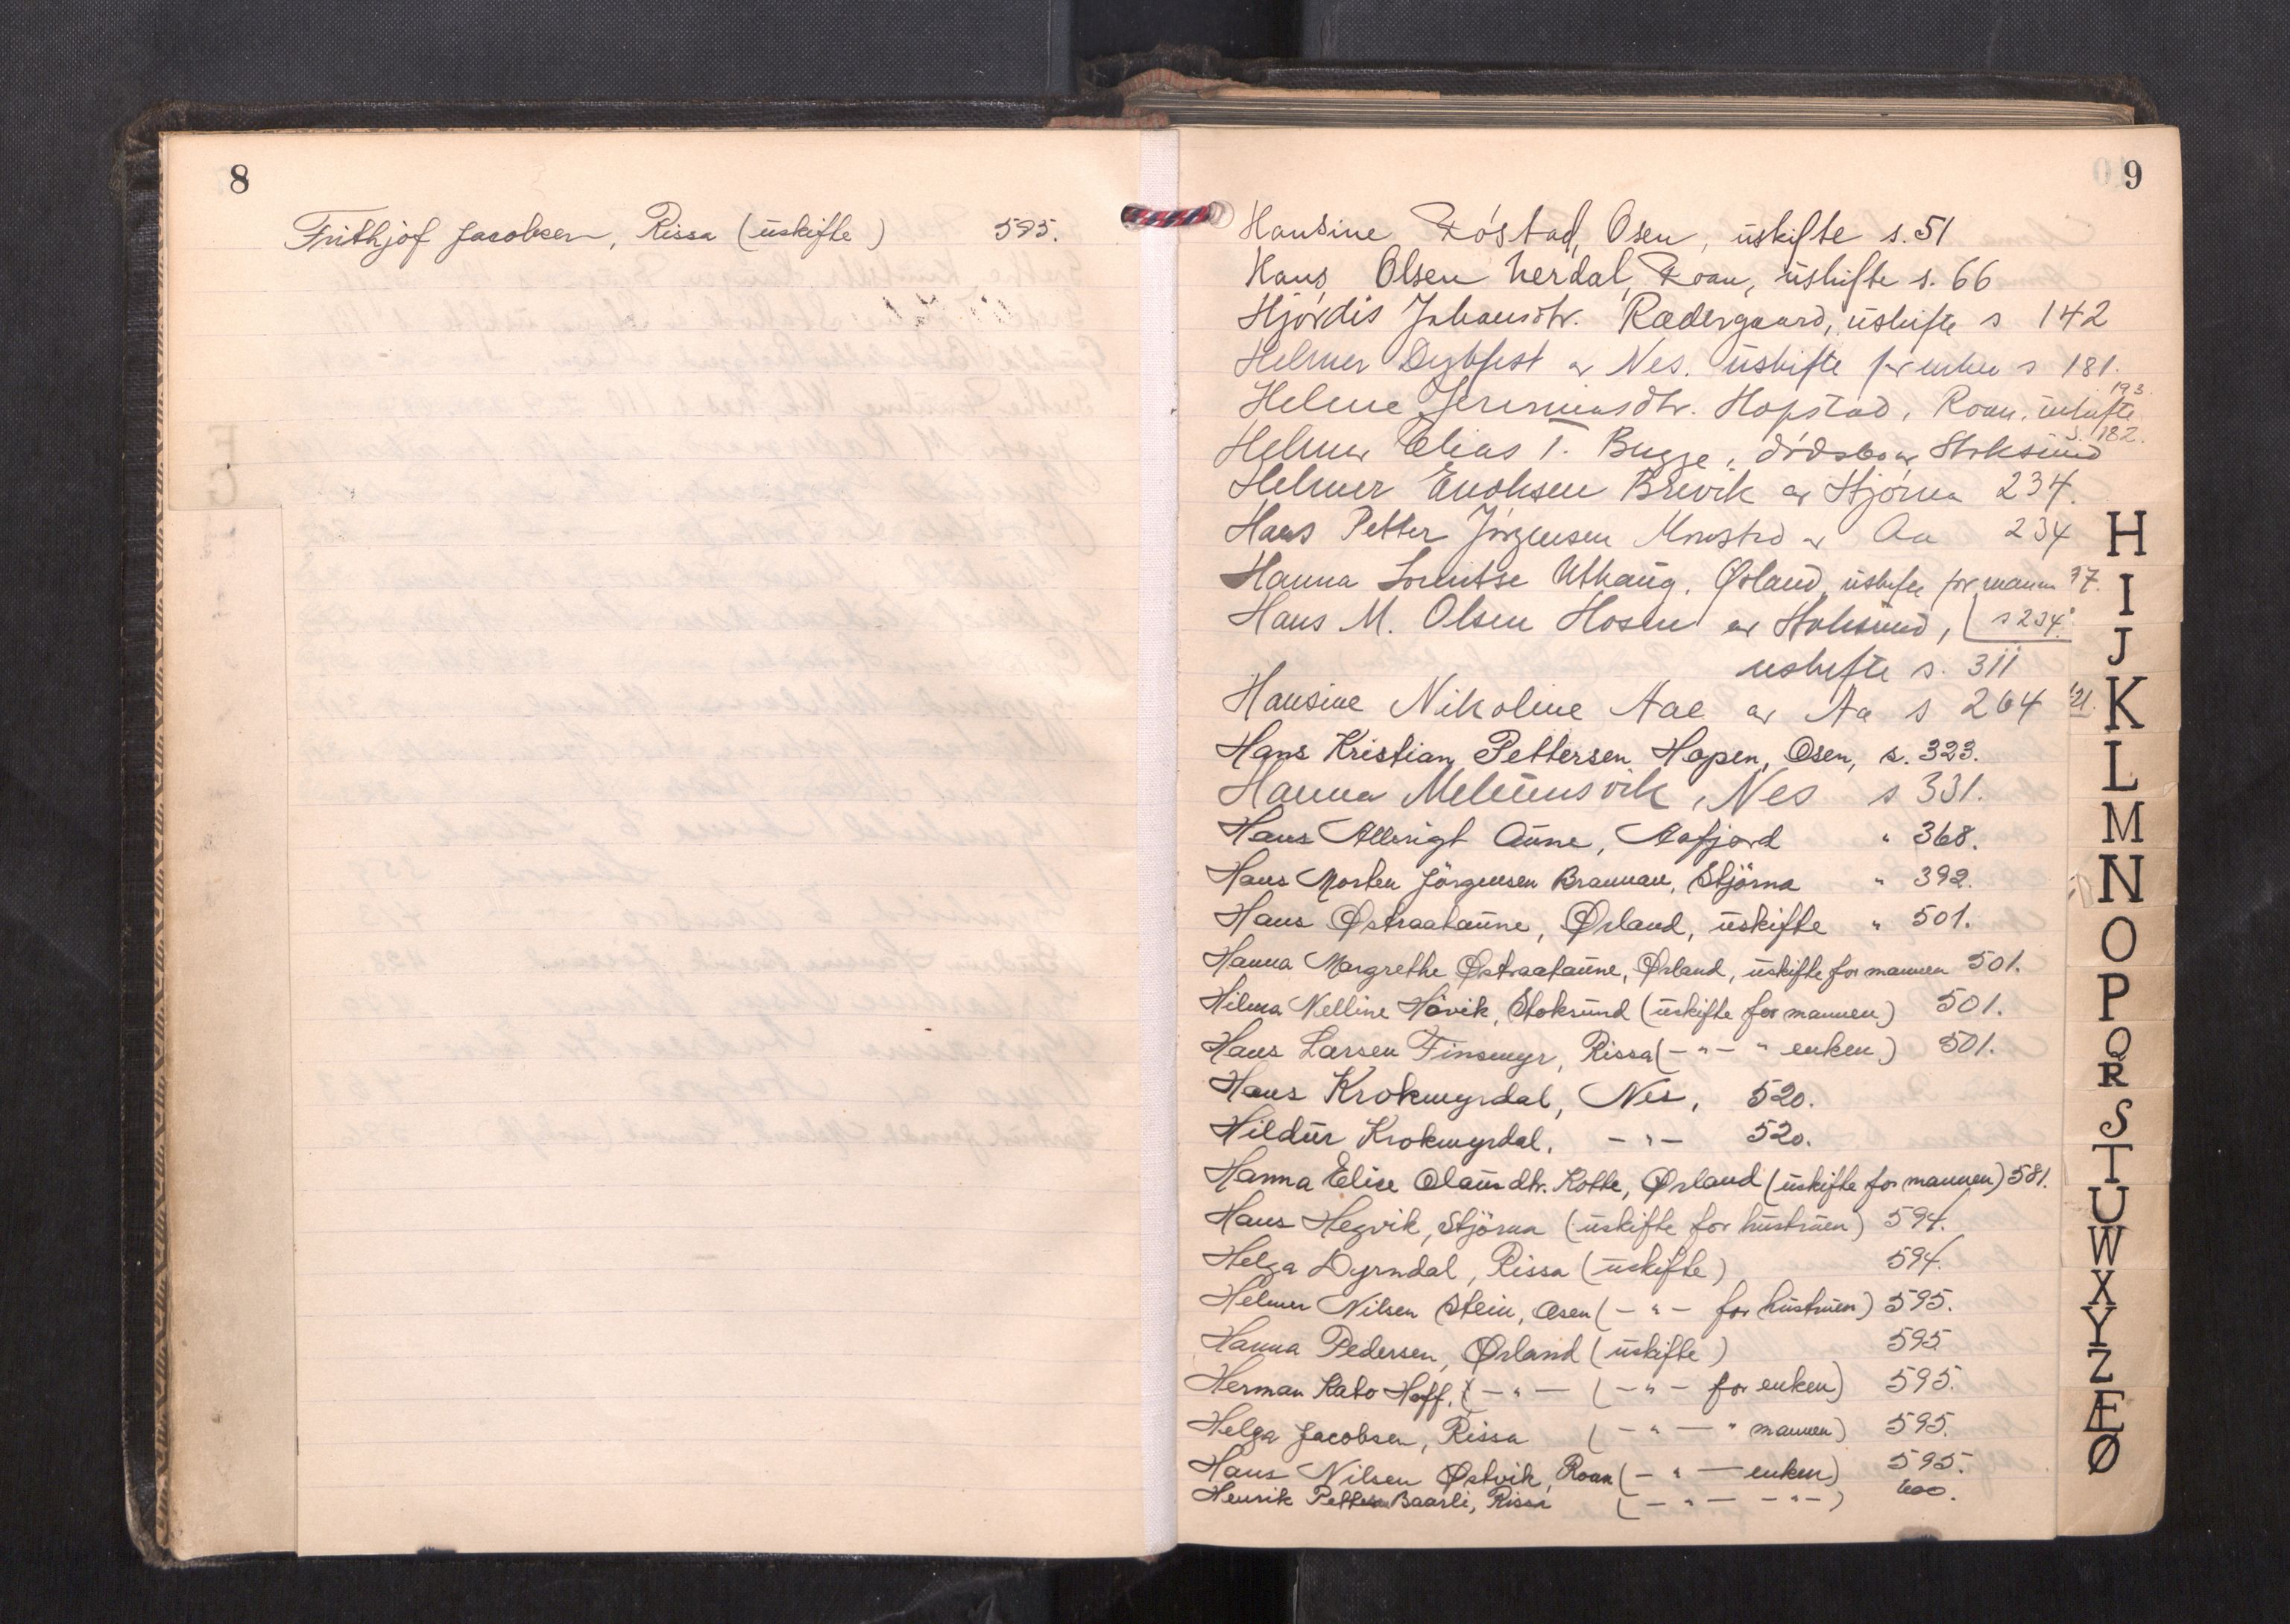 8
Frithjof Jacobsen, Rissa (uskifte) 595.
9
Hansine Røstad, Osen, uskifte s. 51
Hans Olsen Werdal, Roan, uskifte s. 66
Hjørdis Johansdtr. Rædergaard, uskifte s 142
Helmer Dybfest av Nes. uskifte for enken s 181.
193.
Helene Jeremiasdtr. Hopstad, Roan, uskifte
s. 182.
Helmer Elias T. Bugge, dødsbo av Stoksund
Helmer Enoksen Brevik av Stjørna 234.
Hans Petter Jørgensen Monstad av Aa 234
Hanna Lorentse Uthaug, Ørland, uskifte for mannen 97.
Hans M. Olsen Hosen av Stoksund, s 234.
uskifte s. 311
Hansine Nikoline Aae av Aa s 264 421.
Hans Kristian Pettersen Hopen, Osen, s. 323.
Hanna Melumsvik, Nes s 331.
Hans Albrigt Aune, Aafjord " 368.
Hans Morten Jörgensen Brannan, Stjörna " 392.
Hans Østraataune, Ørland, uskifte " 501.
Hanna Margrethe Østraataune, Ørland, uskifte for mannen 501.
Hilma Nelline Hövik, Stoksund (uskifte for mannen) 501.
Hans Larsen Finsmyr, Rissa (-"- " enken) 501.
Hans Krokmyrdal, Nes, 520.
Hildur Krokmyrdal, -"- 520.
Hanna Elise Olausdtr. Kotte, Ørland (uskifte for mannen) 581.
Hans Hegvik, Stjörna (uskifte for hustruen) 594.
Helga Dyrndal, Rissa (uskifte) 594.
Helmer Nilsen Stein, Osen (-"- for hustruen) 595.
Hanna Pedersen, Ørland (uskifte) 595
Herman Kato Hoff, (-"- (-"- for enken) 595.
Helga Jacobsen, Rissa (-"- " mannen) 595.
Hans Nilsen Østvik, Roan (-"- enken) 595.
Henrik Petters Baarli, Rissa (-"- -"-) 600.
H
I
J
K
L
M
N
O
P
Q
R
S
T
U
W
X
Y
Z
Æ
Ø